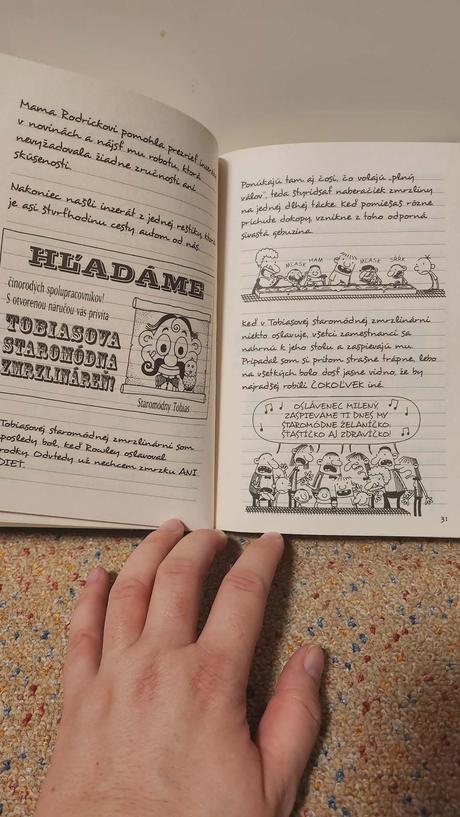 Mama Rodrickovi pomohla prezrieť inzeráty
v novinách a nájsť mu robotu, ktorá
nevyžadovala žiadne zručnosti ani
skúsenosti.
Nakoniec našli inzerát z jednej reštiky, ktorá
je asi štvrťhodinu cesty autom od nás.
HĽADÁME
činorodých spolupracovníkov!
S otvorenou náručou vás privíta
TOBIASOVA
STAROMÓDNA
ZMRZLINÁREŇ!
Staromódny Tobias
Tobiasovej staromódnej zmrzlinárni som
posledy bol, keď Rowley oslavoval
rodky. Odvtedy už nechcem zmrzku ANI
DIET.
Ponúkajú tam aj čosi, čo volajú „plný
válov", teda štyridsať naberačiek zmrzliny
na jednej dlhej tácke. Keď pomiešaš rôzne
príchute dokopy, vznikne z toho odporná
sivastá gebuzina.
MĽASK HAM MĽASK SŔŔK
Keď v Tobiasovej staromódnej zmrzlinárni
niekto oslavuje, všetci zamestnanci sa
nahrnú k jeho stolu a zaspievajú mu.
Pripadal som si pritom strašne trápne, lebo
na všetkých bolo dosť jasne vidno, že by
najradšej robili ČOKOĽVEK iné.
OSLÁVENEC MILENÝ,
ZASPIEVAME TI DNES MY
STAROMÓDNE ŽELANÍČKO:
ŠŤASTÍČKO AJ ZDRAVÍČKO!
31